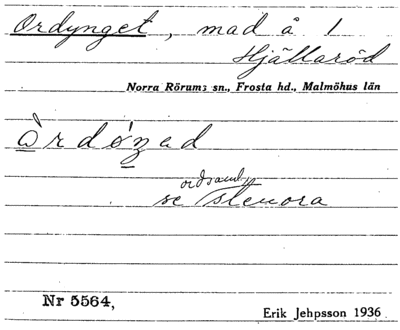 Ordynget, mad å 1
Hjällaröd
Norra Rörums sn., Frosta hd., Malmöhus län
se stenora
Nr 5564,
Erik Jehpsson 1936